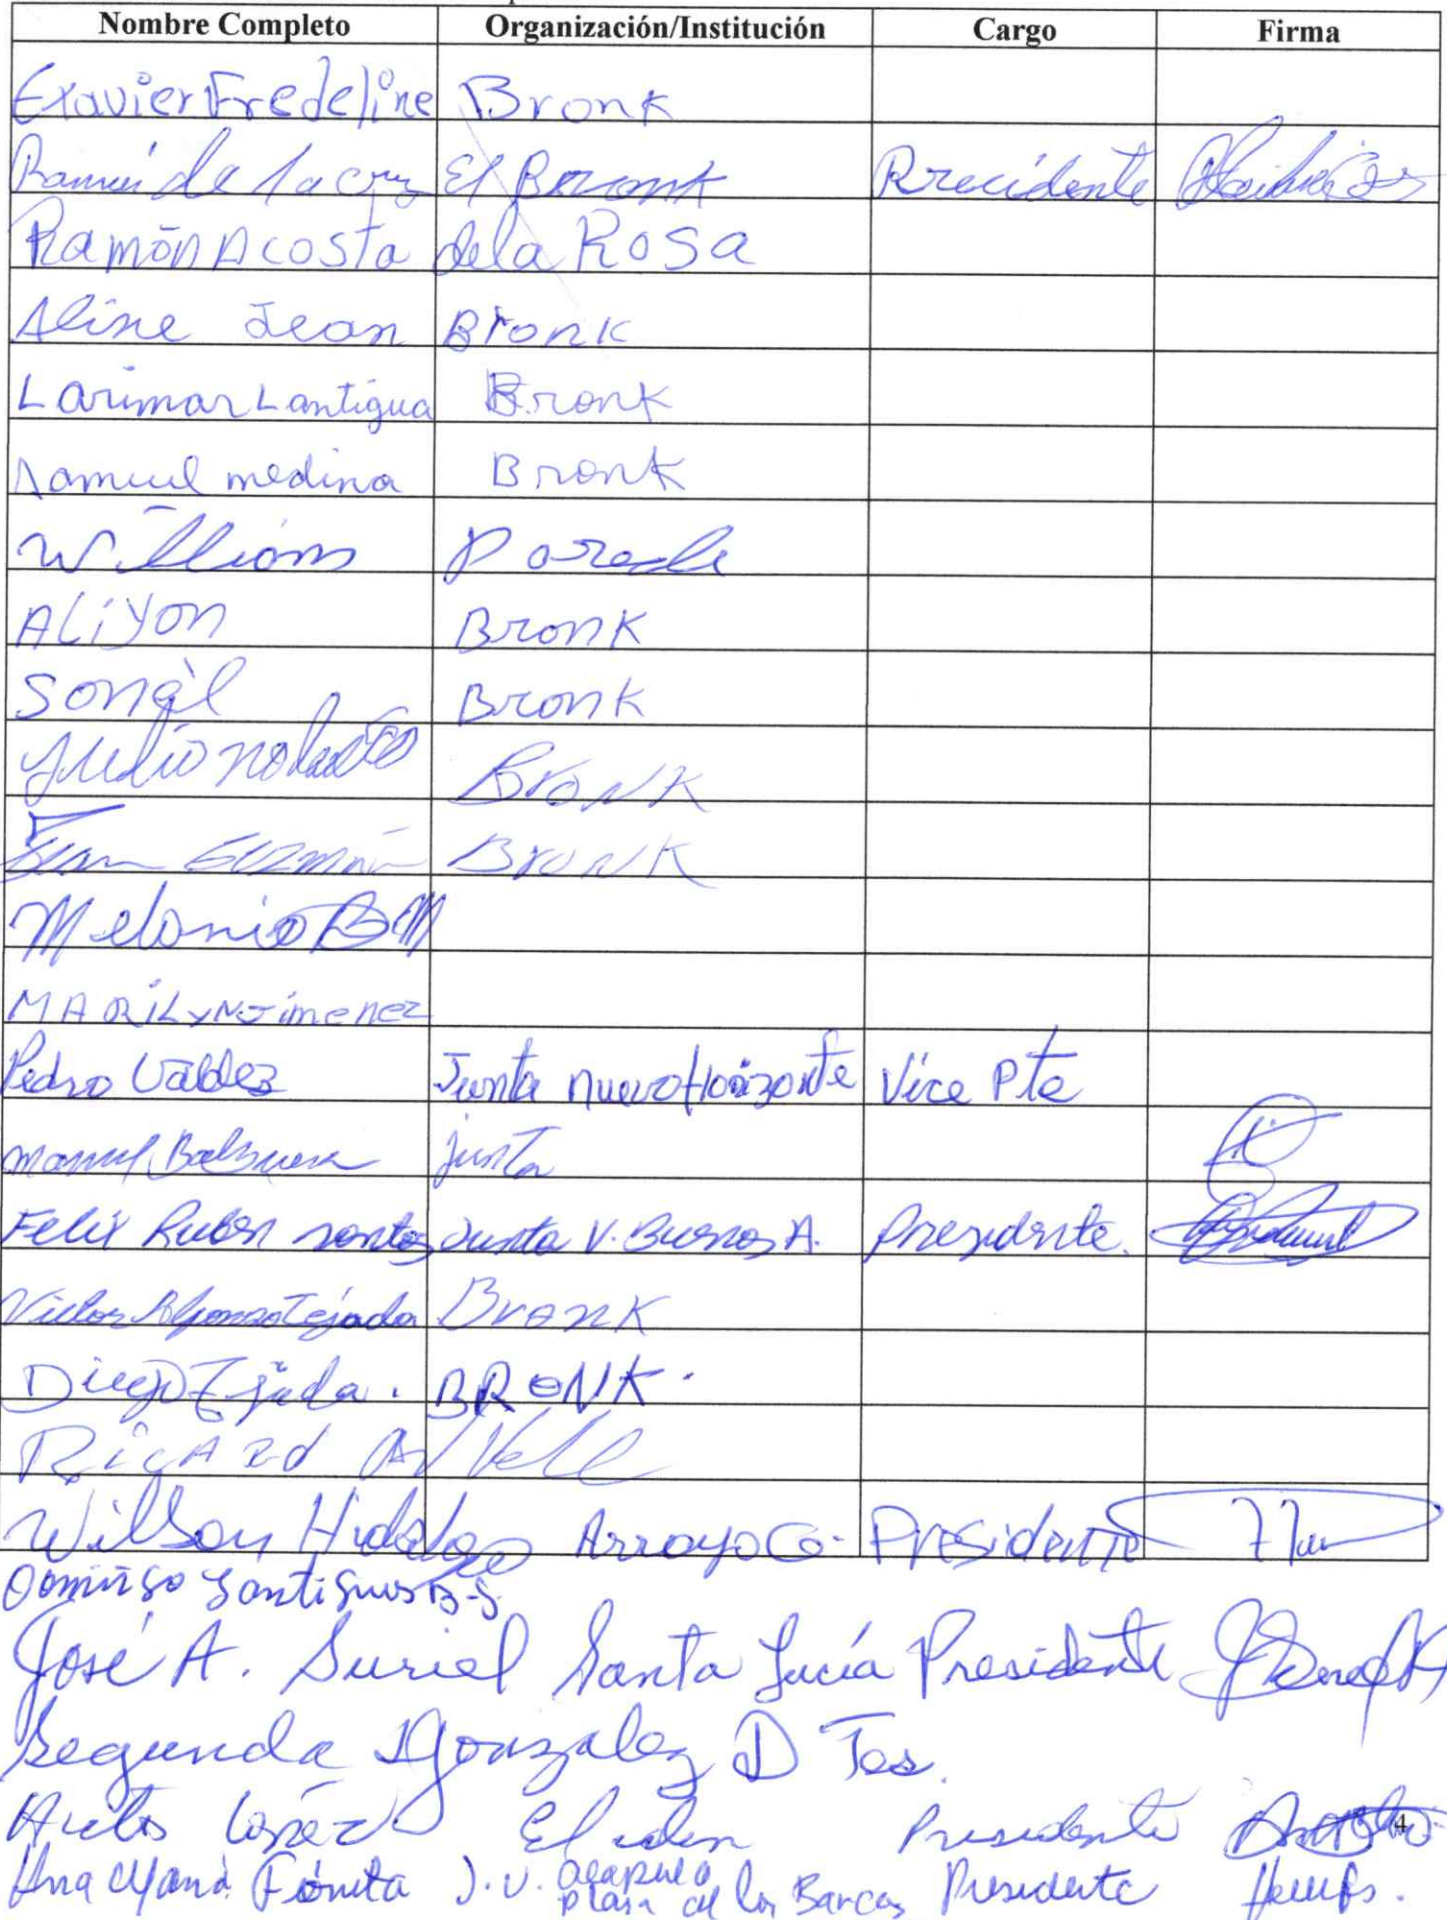 Nombre Completo Organización/Institución Cargo Firma
Exavier Fredeline Bronk
Ramón de la cruz El Bronk Precidente
Ramón Acosta de la Rosa
Aline Jean Bronk
Larimar Lantigua Bronk
Samuel medina Bronk
Willians Parede
ALiYon Bronk
Sonal Bronk
Julio nolasco Bronk
Juan Guzmán Bronk
Melonio BM
MARiLyN Jimenez
Pedro Valdez Junta nuevo Horizonte Vice Pte
manuel Balbuena junta
Felix Ruben santos Junta V. Buenos A. Presidente.
Victor Alfonso Tejada Bronk
Diego Tejada. BRONK.
RicARd
Wilson Hidalgo Arroyo Presidente
Domingo
José A. Suriel Santa Lucía Presidente
Segunda Gonzalez D Tes.
López El eden Presidente
4
Ana Maria J.V. acapulco Presidente
plaza de los Barcos